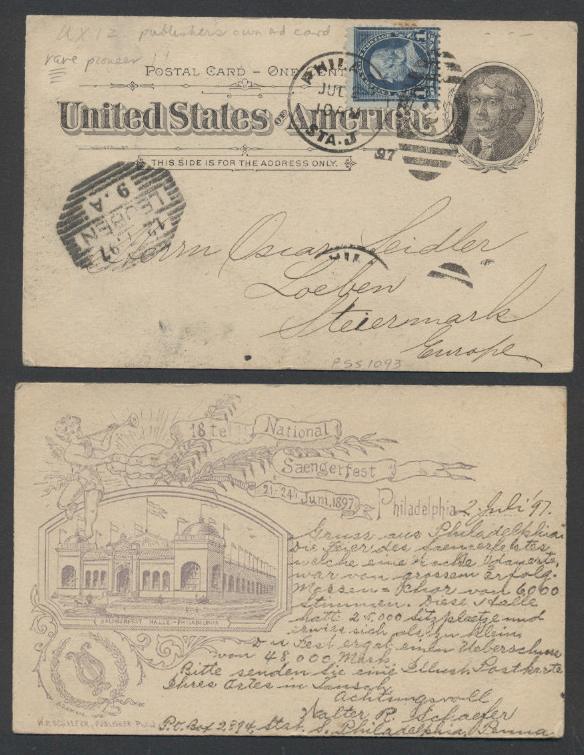 UX12 publisher's own ad card
rare pioneer!!
POSTAL CARD – ONE CENT
United States of America
THIS SIDE IS FOR THE ADDRESS ONLY.
PHILA
JUL
STA. J
97
LEOBEN
9. A
Herrn Oscar Seidler
Loeben
Steiermark
Europe
PSS1093
18te National
Saengerfest
21-24 Juni, 1897
Philadelphia 2 Juli '97.
Gruss aus Philadelphia
Die Feier des Saengerfestes,
welche eine Woche dauerte,
war von grossem Erfolg.
Massen-Chor von 6000
Stimmen. Diese Halle
hatt 25,000 Sitzplaetze und
erwies sich als zu klein
Das Fest ergab einen Ueberschuss
von 48,000 Mark.
Bitte senden Sie eine Illust. Postkarte
Ihres Ortes in Tausch.
Achtungsvoll
Walter R. Schaefer
P.O. Box 2894, Stat. J, Phila, Penna
SAENGERFEST HALLE - PHILADELPHIA
W.R. SCHAEFER, PUBLISHER PHILA